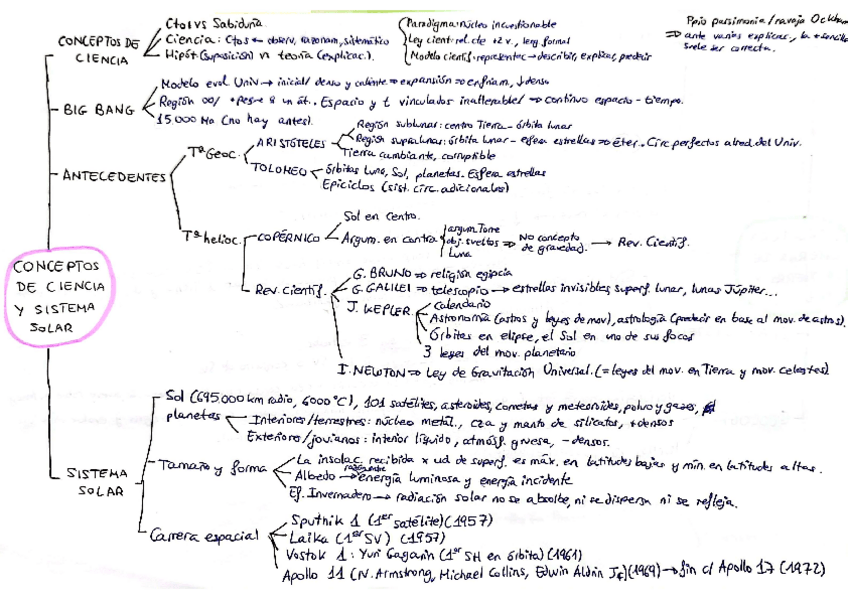 CONCEPTOS DE CIENCIA Y SISTEMA SOLAR
CONCEPTOS DE CIENCIA
Ctos vs Sabiduría
Ciencia: Ctos ← observ, razonam, sistemático
Hipót (suposición) vs teoría (explicac.)
Paradigma: núcleo incuestionable
Ley cient: rel. cte +2 v., leng formal
Modelo científ → representac → describir, explicar, predecir
Ppio parsimonia / navaja Ockham
⇒ ante varias explicac., la + sencilla
suele ser correcta.
BIG BANG
Modelo evol. Univ → inicial/ denso y caliente ⇒ expansión ⇒ enfriam, ↓denso
Región ∞/ + peque q un át.. Espacio y t vinculados inalterable/ ⇒ continuo espacio-tiempo.
15000 Ma (no hay antes).
ANTECEDENTES
Tª Geoc.
ARISTÓTELES
Región sublunar: centro Tierra - órbita lunar
Región supralunar: órbita lunar - esfera estrellas ⇒ éter.. Circ perfectos alred. del Univ.
Tierra cambiante, corruptible
TOLOMEO
órbitas Luna, Sol, planetas. Esfera estrellas
Epiciclos (sist. circ. adicionales)
Tª helioc.
COPÉRNICO
Sol en centro.
Argum. en contra
argum. Torre
obj. sueltos
Luna
⇒ No concepto de gravedad.
→ Rev. Científ.
Rev. Científ.
G. BRUNO ⇒ religión egipcia
G. GALILEI ⇒ telescopio → estrellas invisibles, superf. lunar, lunas Júpiter...
J. KEPLER
Calendario
Astronomía (astros y leyes de mov), astrología (predecir en base al mov. de astros).
Órbitas en elipse, el Sol en uno de sus focos
3 leyes del mov. planetario
I. NEWTON ⇒ Ley de Gravitación Universal. (= leyes del mov. en Tierra y mov. celestes)
SISTEMA SOLAR
Sol (695.000 km radio, 6000 °C), 101 satélites, asteroides, cometas y meteoroides, polvo y gases,
planetas
Interiores/terrestres: núcleo metal., cza y manto de silicatos, + densos
Exteriores/jovianos: interior líquido, atmósf. gruesa, - densos.
Tamaño y forma
La insolac. recibida x ud de superf. es máx. en latitudes bajas y mín. en latitudes altas.
Albedo → energía luminosa y energía incidente
Ef. Invernadero → radiación solar no se absorbe, ni se dispersa ni se refleja.
Carrera espacial
Sputnik 1 (1er satélite) (1957)
Laika (1er SV) (1957)
Vostok 1: Yuri Gagarin (1er SH en órbita) (1961)
Apollo 11 (N. Armstrong, Michael Collins, Edwin Aldrin Jr) (1969) → fin c/ Apollo 17 (1972)